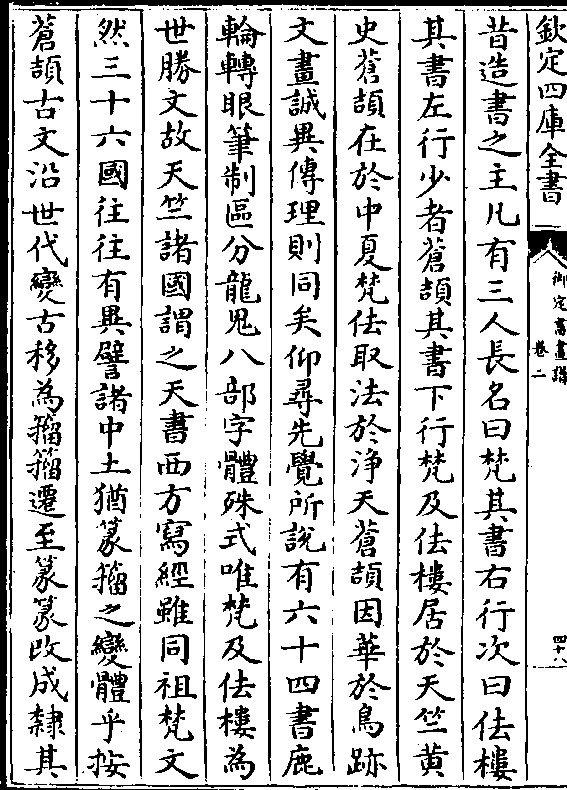 欽定四庫全書
御定書畫譜
卷二
四十八
昔造書之主凡有三人長名曰梵其書右行次曰佉樓
其書左行少者蒼頡其書下行梵及佉樓居於天竺黄
史蒼頡在於中夏梵佉取法於浄天蒼頡因華於鳥跡
文畫誠異傳理則同矣仰尋先覺所說有六十四書鹿
輪轉眼筆制區分龍鬼八部字體殊式唯梵及佉樓為
世勝文故天竺諸國謂之天書西方寫經雖同祖梵文
然三十六國往往有異譬諸中土猶篆籀之變體乎按
蒼頡古文沿世代變古移為籀籀遷至篆篆改成隸其